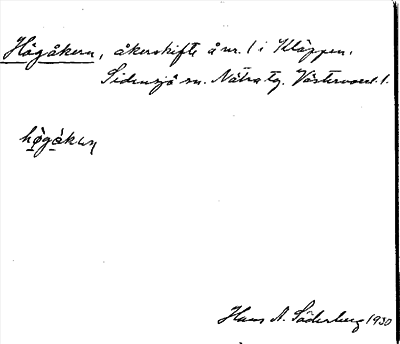 Högåkern, åkerskifte å nr. 1 i Kläppen.
Sidensjö sn. Nätra tg. Västernorrl. l.
högåkern
Hans A. Söderberg 1930